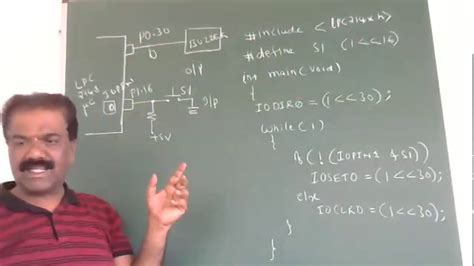 P0.30
BUZZER
O/P
LPC
2148
μC
IOPIN1
P1.16
S1
I/P
+5V
#include <LPC214x.h>
#define S1 (1<<16)
int main(void)
{
IODIR0 = (1<<30);
while(1)
{
if(!(IOPIN1 & S1))
IOSET0 = (1<<30);
else
IOCLR0 = (1<<30);
}
}